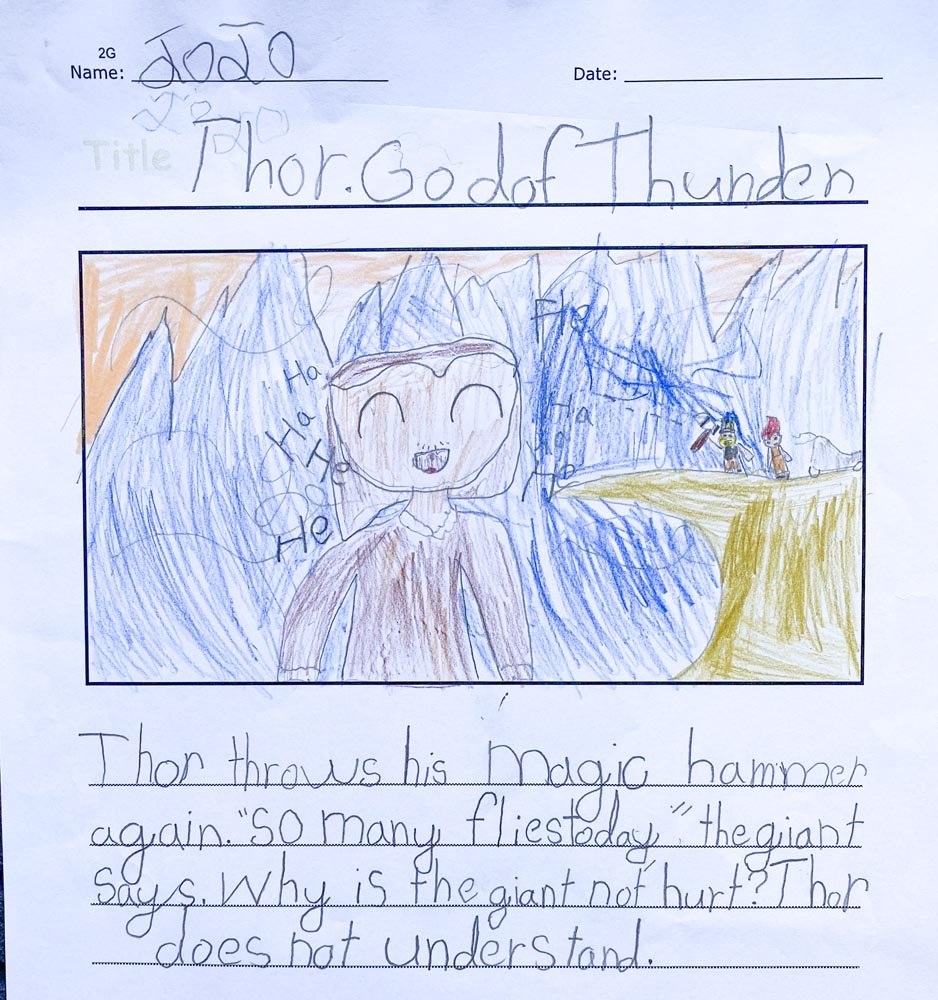 2G
Name: JOJO
Date:
Title Thor. God of Thunder
Ha
Ha
Ha
He
Ha
Thor throws his magic hammer
again. "so many flies today" the giant
says. Why is the giant not hurt? Thor
does not understand.